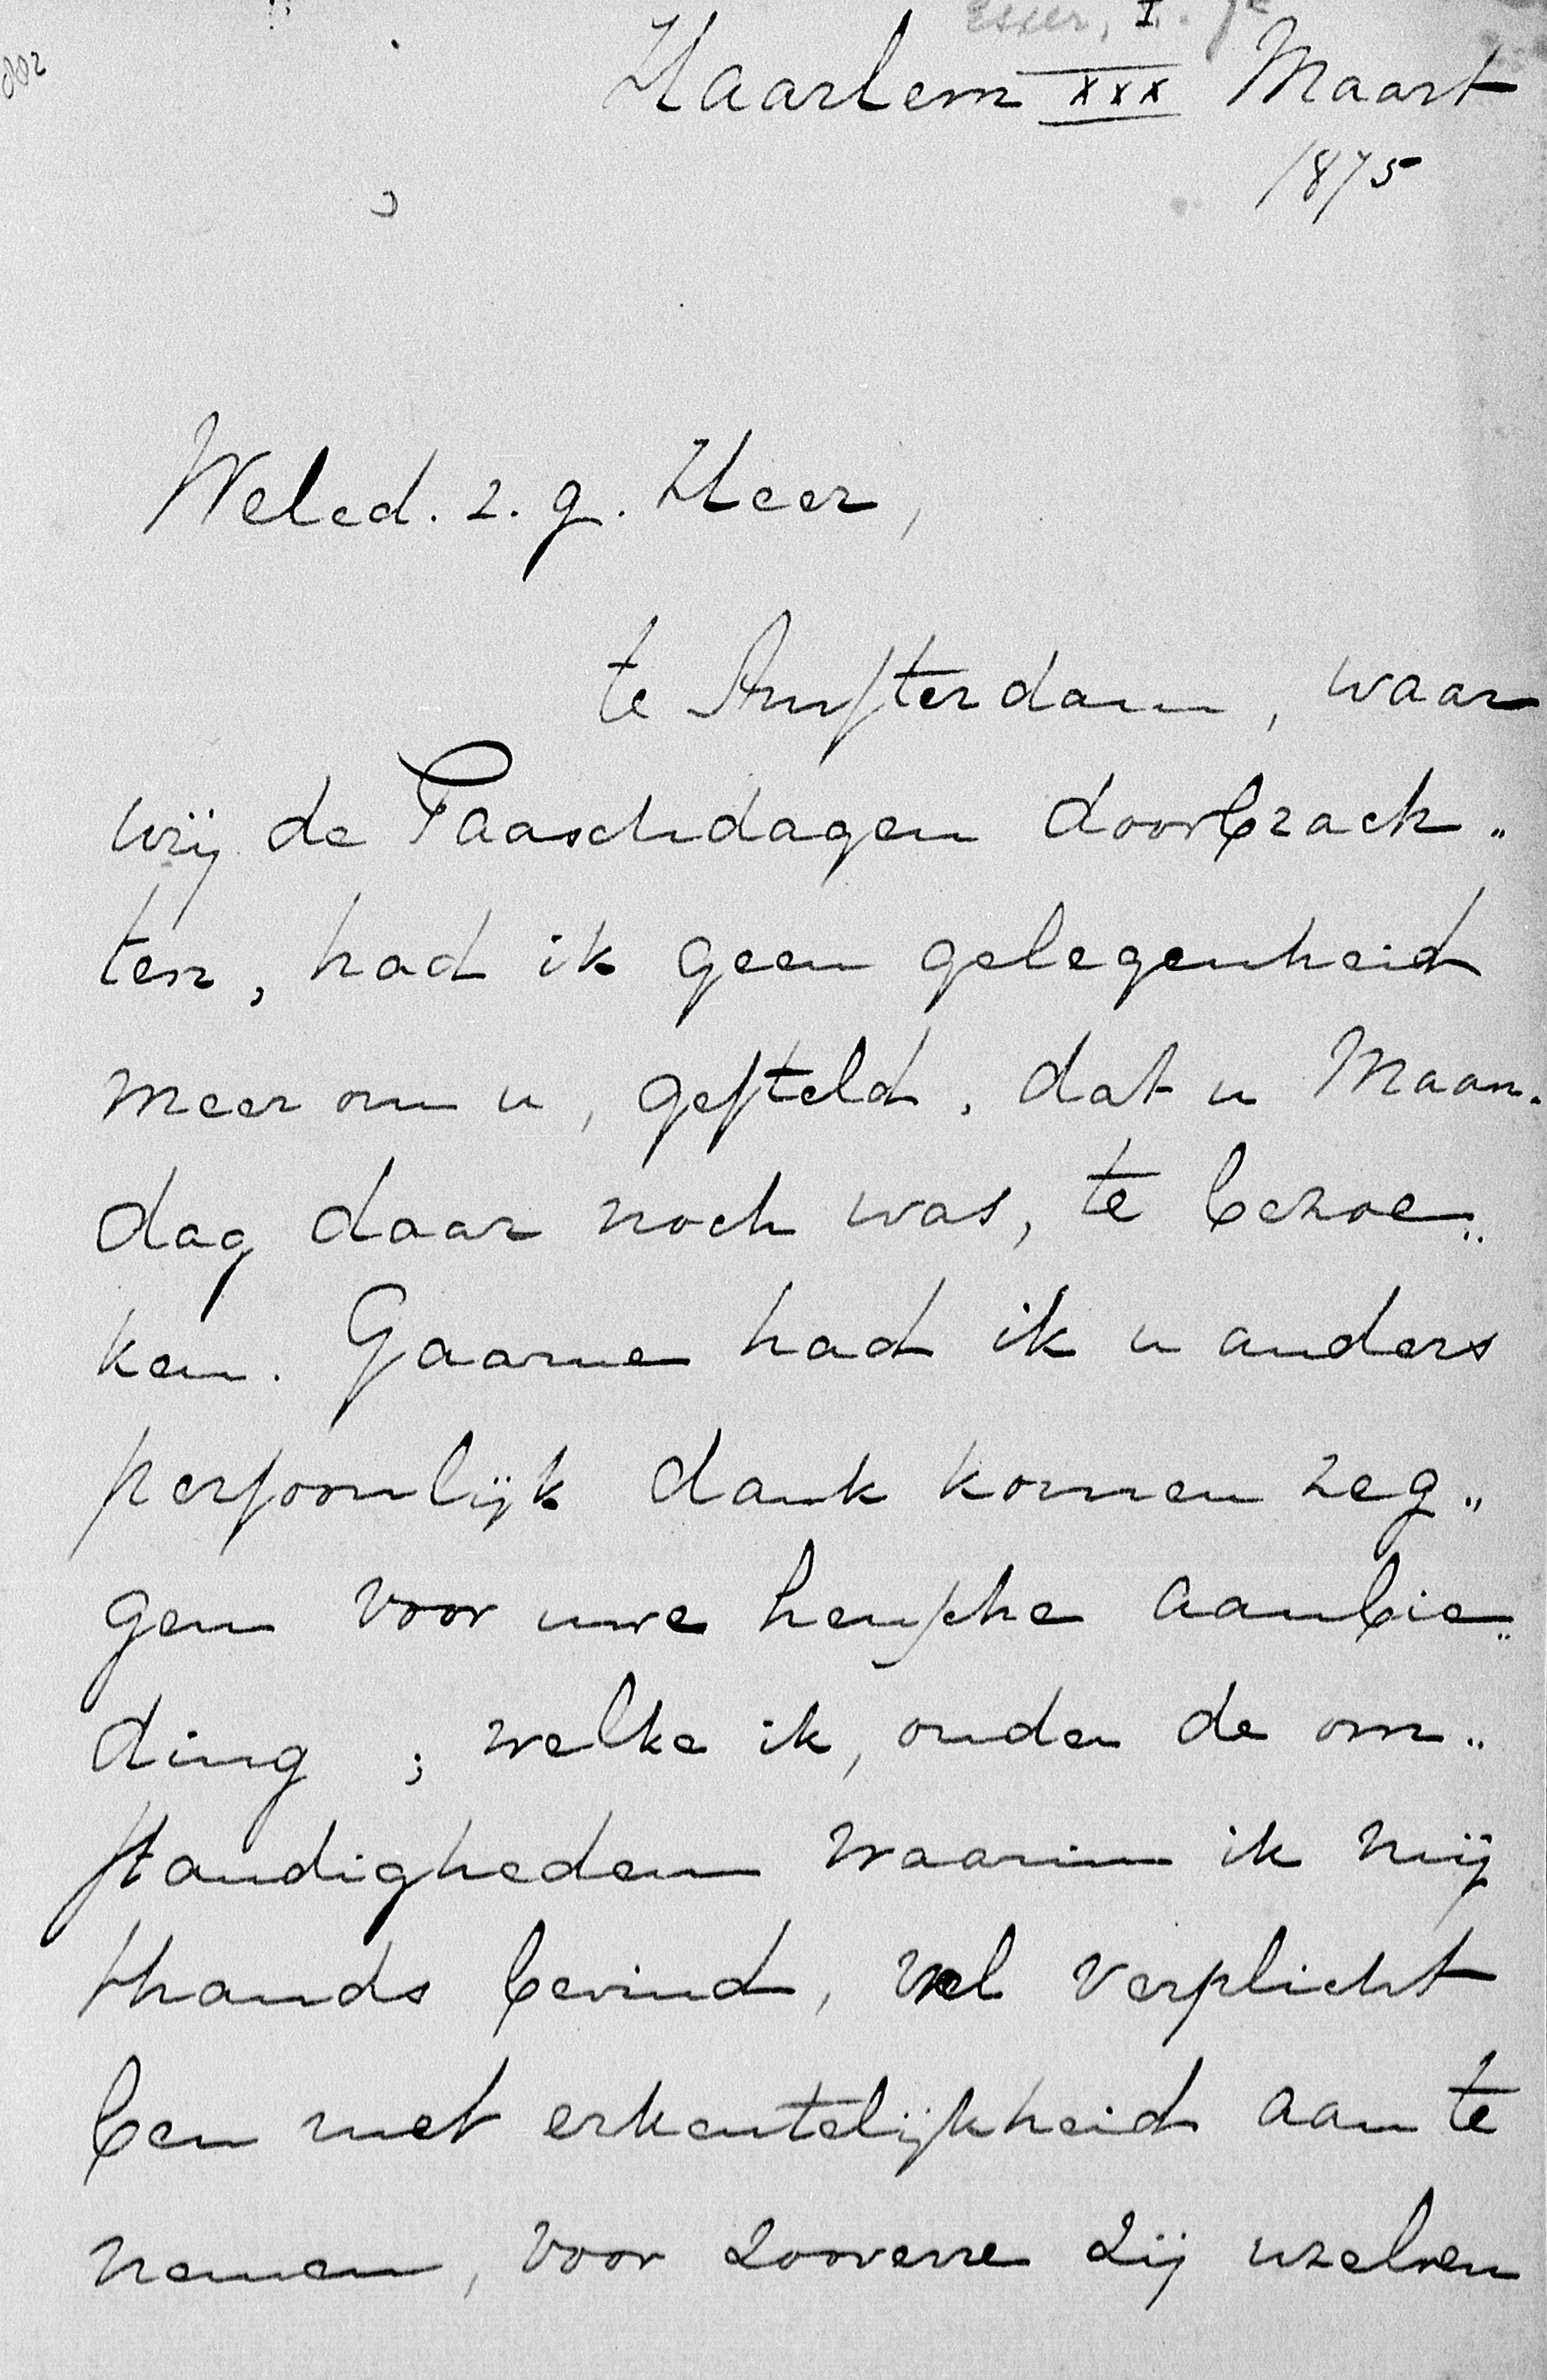 Esser, I. Je
802
Haarlem XXX Maart
1875
Weled. z. g. Heer,
te Amsterdam, waar
wij de Paaschdagen doorbrach„
ten, had ik geen gelegenheid
meer om u, gesteld, dat u Maan„
dag daar noch was, te bezoe„
ken. Gaarne had ik u anders
persoonlijk dank komen zeg„
gen voor uwe heusche aanbie„
ding; welke ik, onder de om„
standigheden waarin ik mij
thands bevind, wel verplicht
ben met erkentelijkheid aan te
nemen, voor zooverre zij uzelven